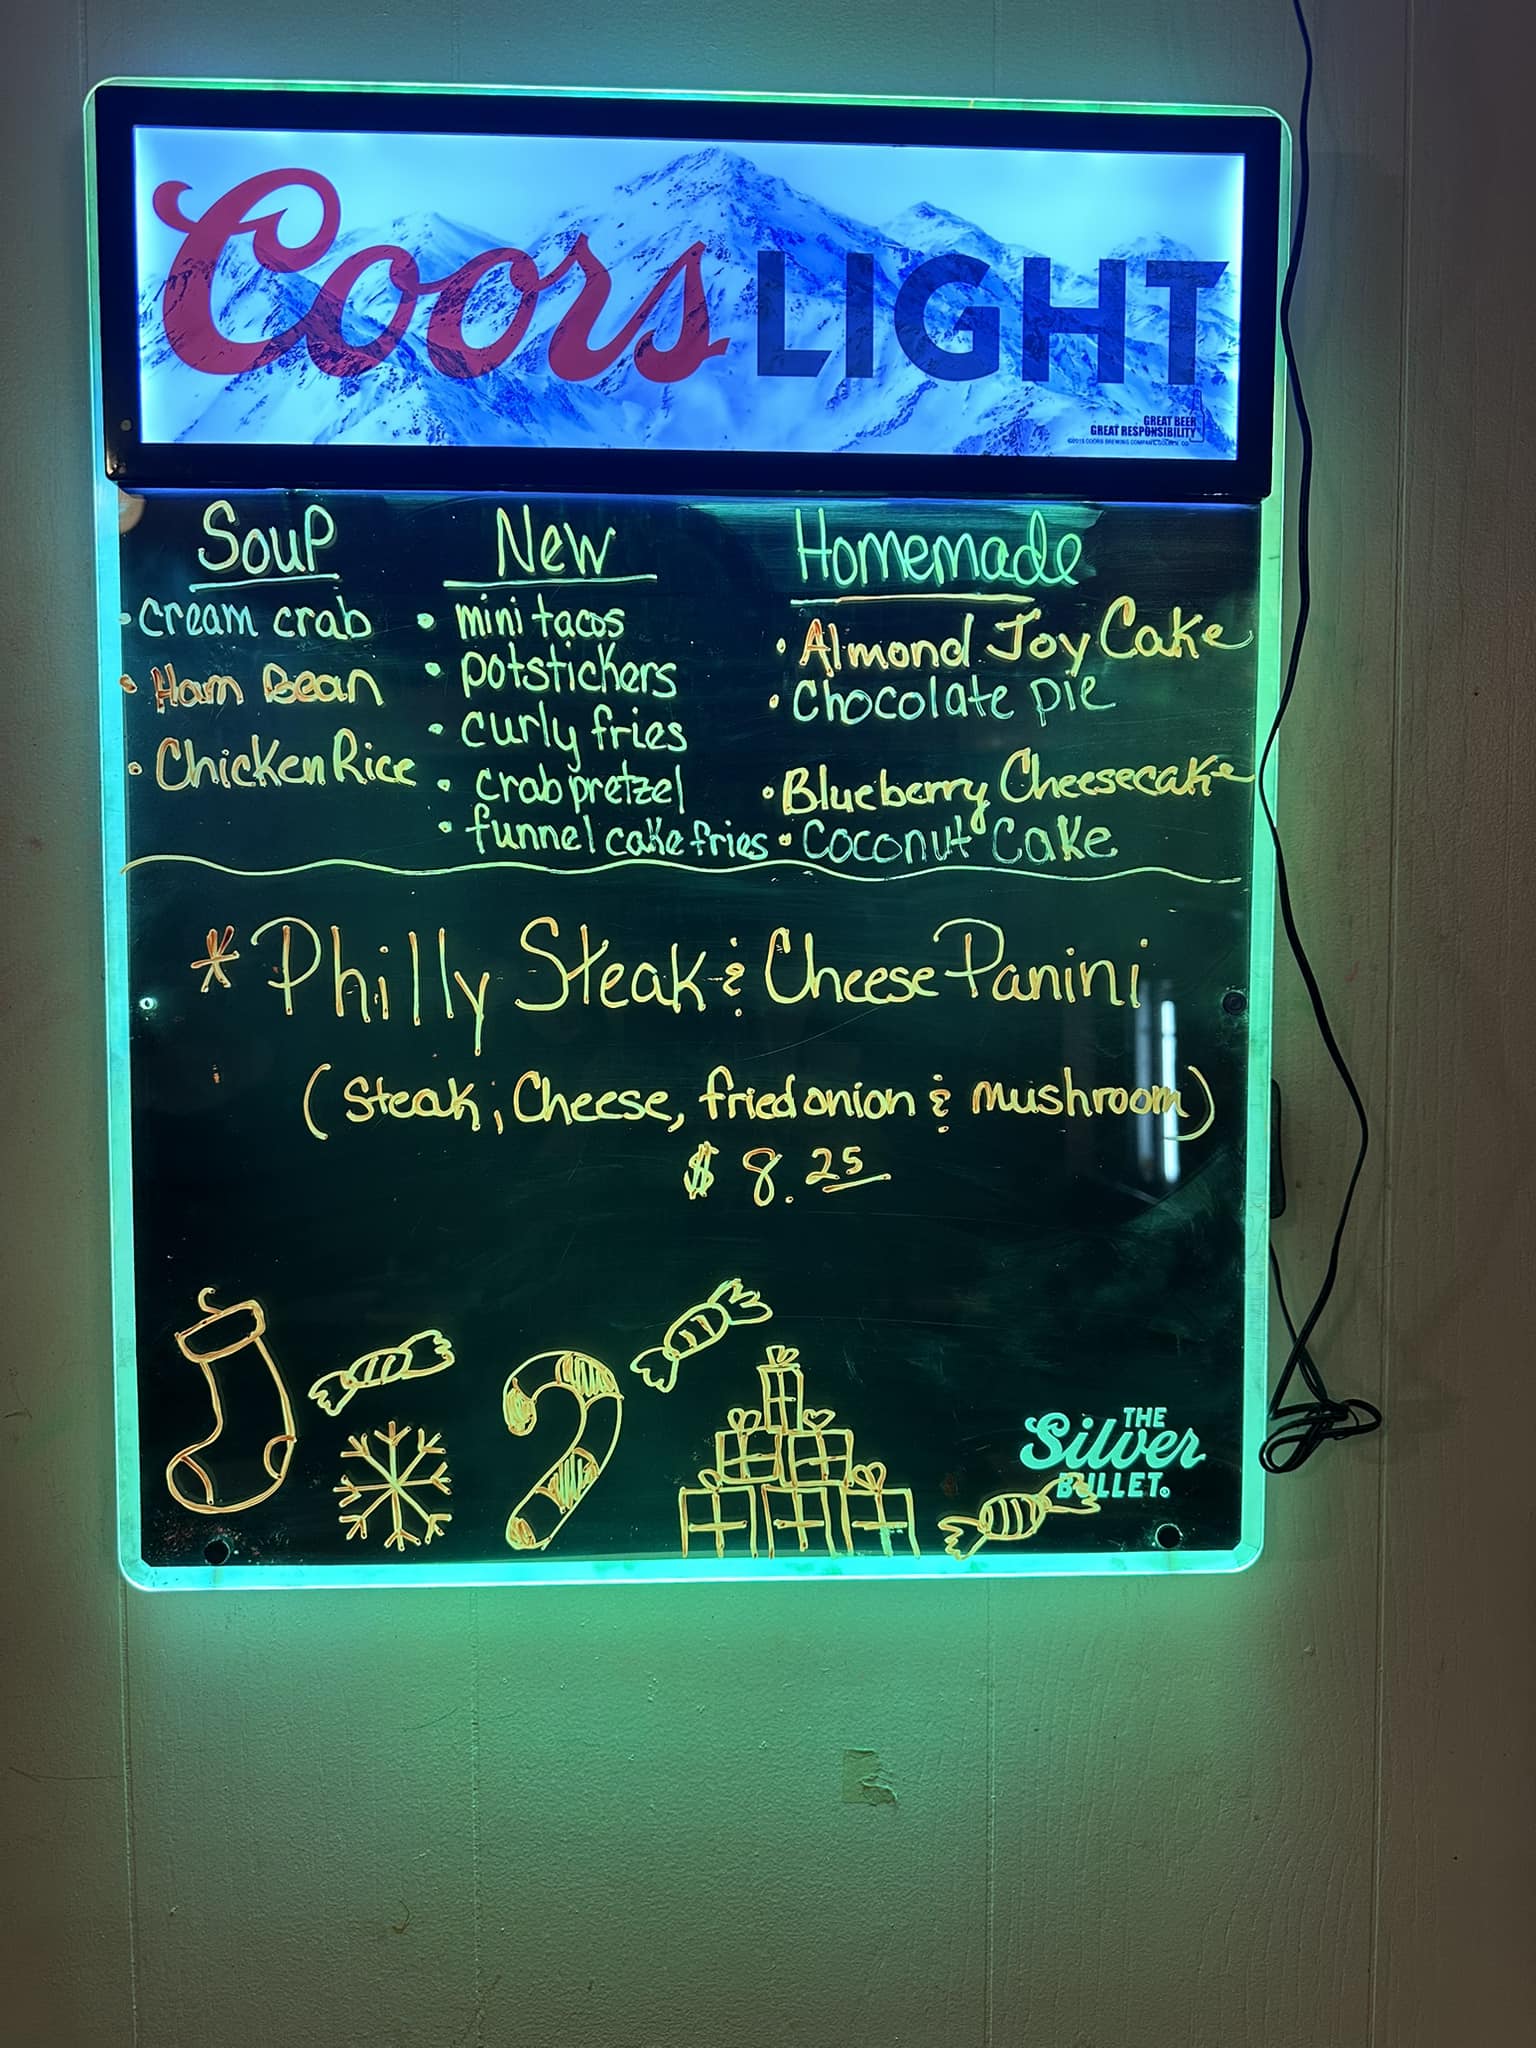 Coors LIGHT
GREAT BEER
GREAT RESPONSIBILITY
©2015 COORS BREWING COMPANY, GOLDEN, CO
Soup
• cream crab
• Ham Bean
• Chicken Rice
New
• mini tacos
• potstickers
• curly fries
• crab pretzel
• funnel cake fries
Homemade
• Almond Joy Cake
• Chocolate pie
• Blueberry Cheesecake
• Coconut Cake
* Philly Steak & Cheese Panini
(Steak, Cheese, fried onion & mushroom)
$ 8.25
THE
Silver
BULLET®